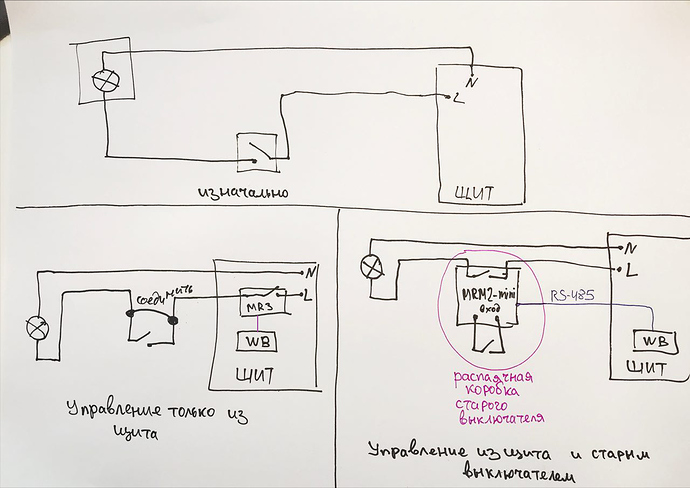 N
L
ЩИТ
изначально
N
L
соединить
MR3
WB
ЩИТ
Управление только из
щита
N
L
MRM2-mini
вход
RS-485
WB
ЩИТ
распаячная
коробка
старого
выключателя
Управление из щита и старым
выключателем